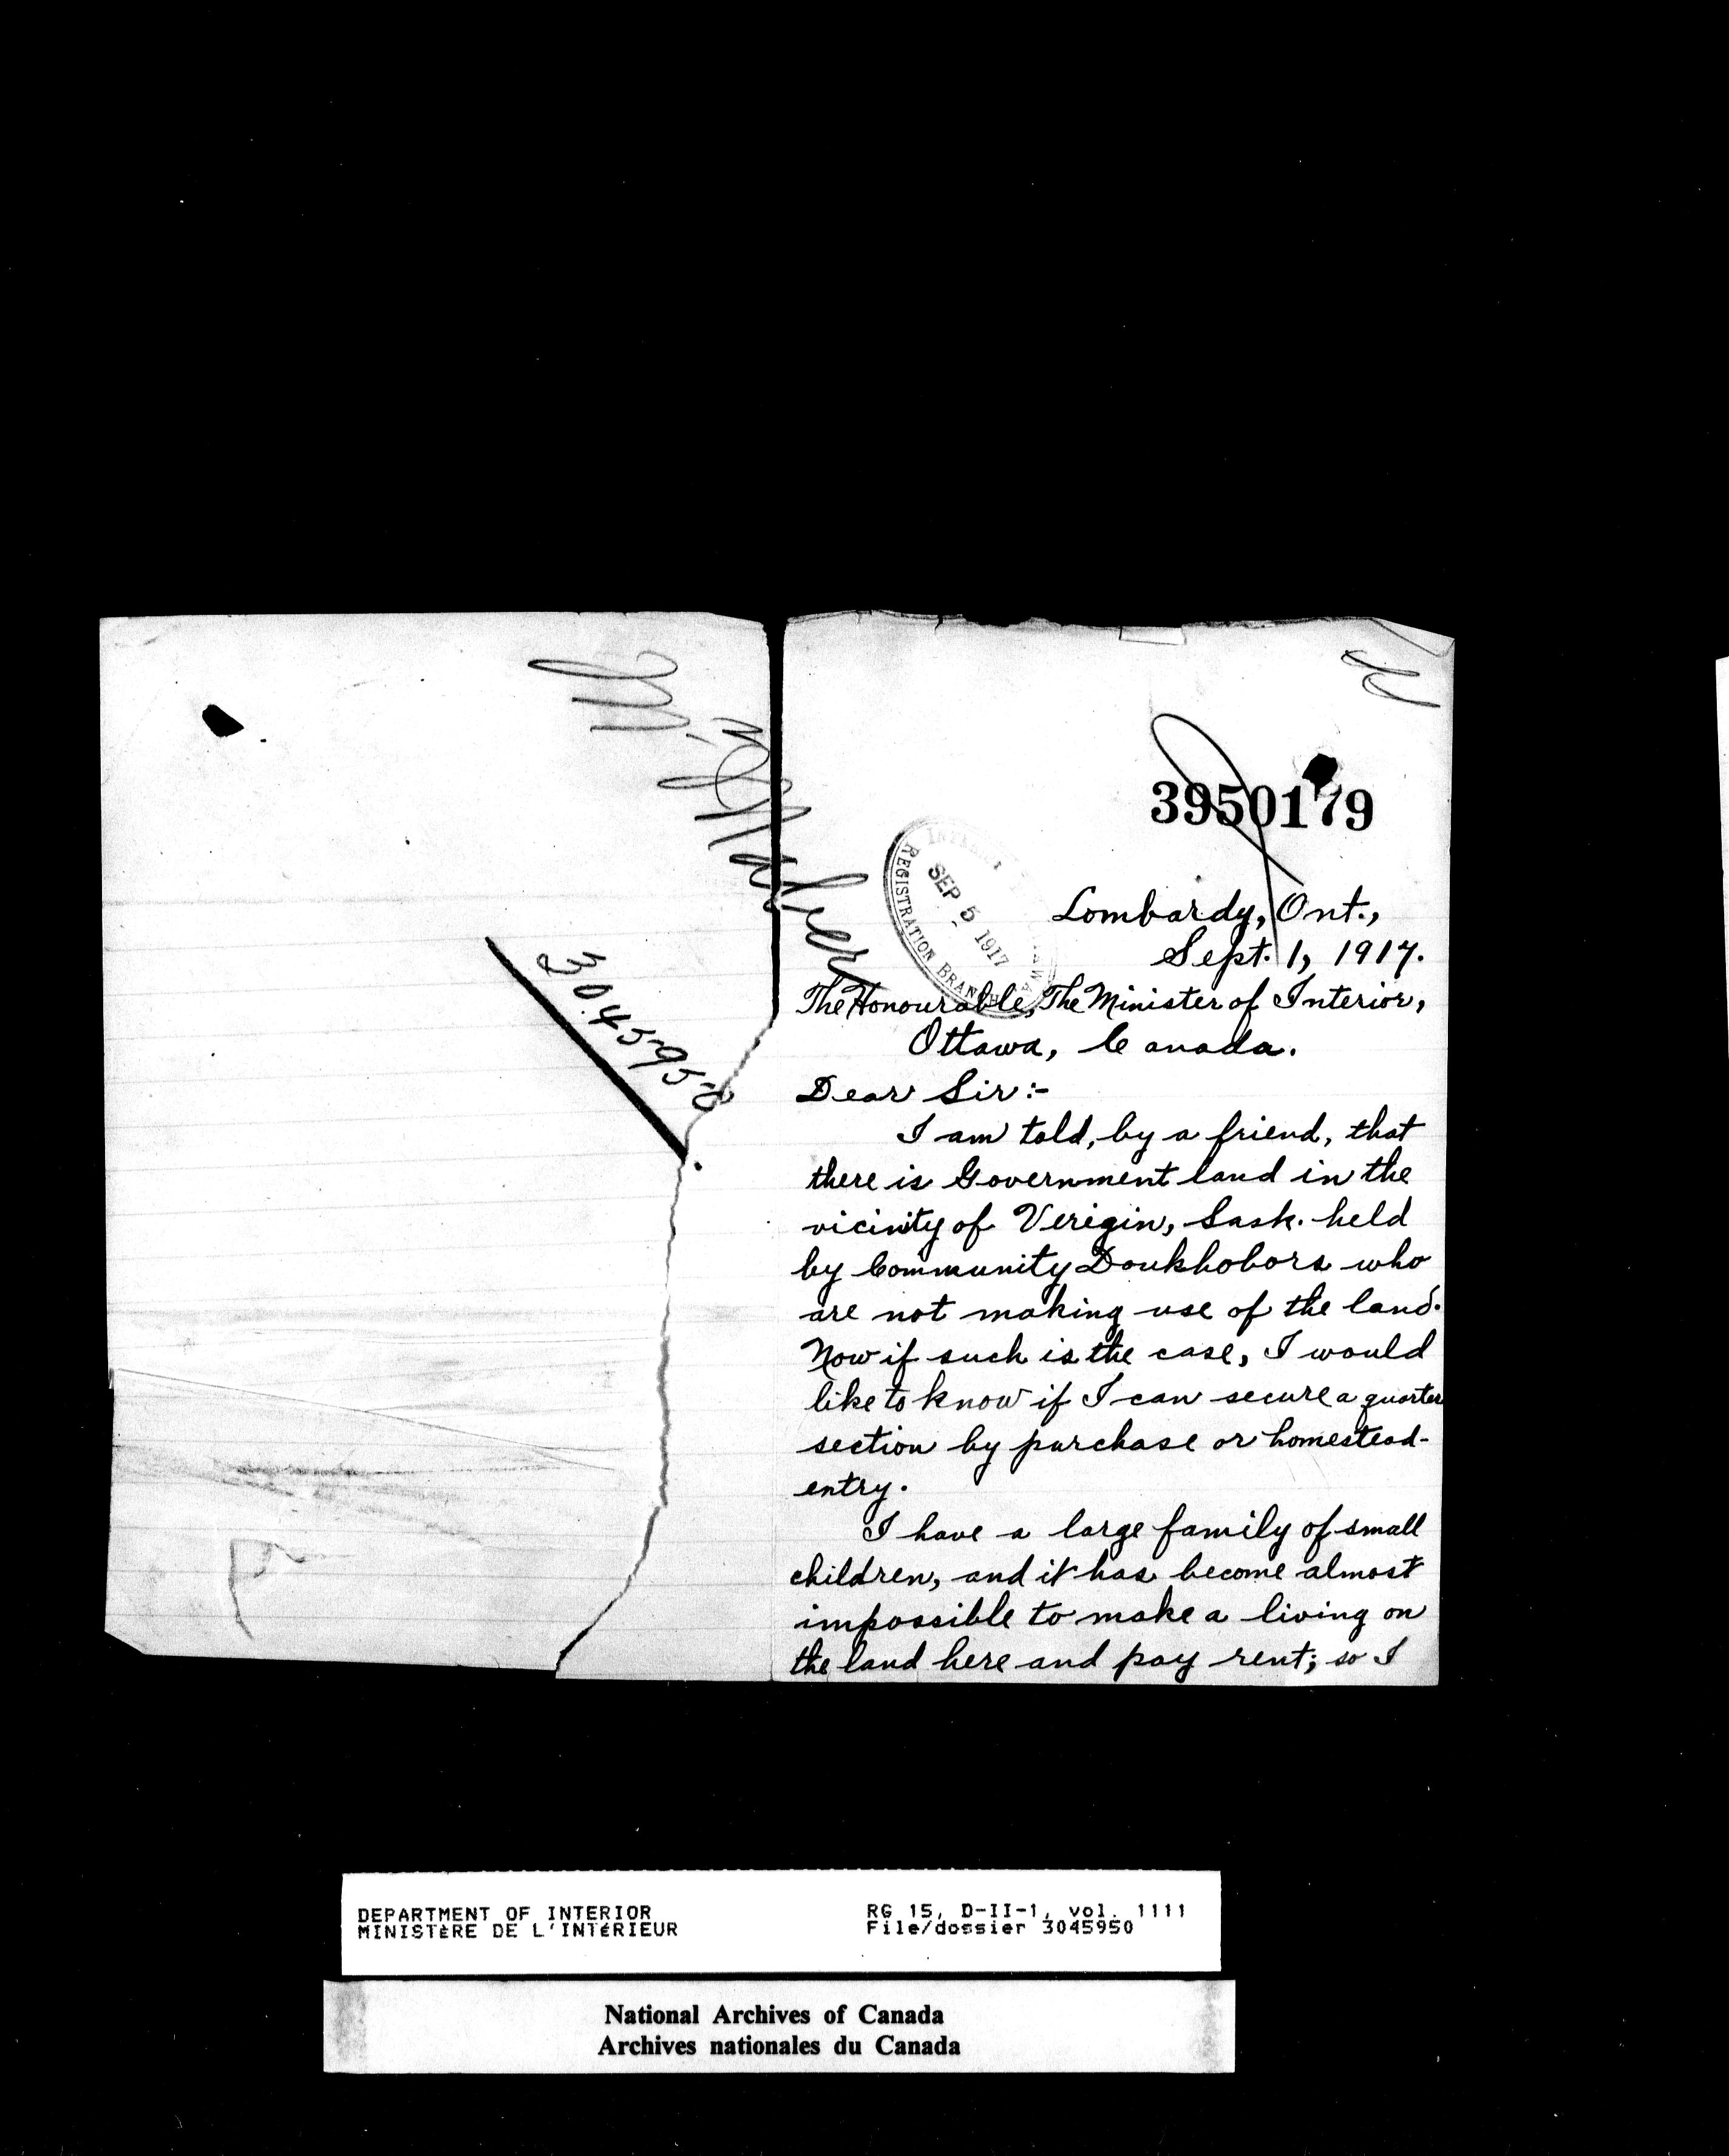 3045950
3950179
REGISTRATION BRANCH
SEP 5 1917
Lombardy, Ont.,
Sept. 1, 1917.
The Honourable, The Minister of Interior,
Ottawa, Canada.
Dear Sir:-
I am told, by a friend, that
there is Government land in the
vicinity of Verigin, Sask. held
by Community Doukhobors who
are not making use of the land.
Now if such is the case, I would
like to know if I can secure a quarter
section by purchase or homestead-
entry.
I have a large family of small
children, and it has become almost
impossible to make a living on
the land here and pay rent; so I
DEPARTMENT OF INTERIOR
MINISTÈRE DE L'INTÉRIEUR
RG 15, D-II-1, vol. 1111
File/dossier 3045950
National Archives of Canada
Archives nationales du Canada